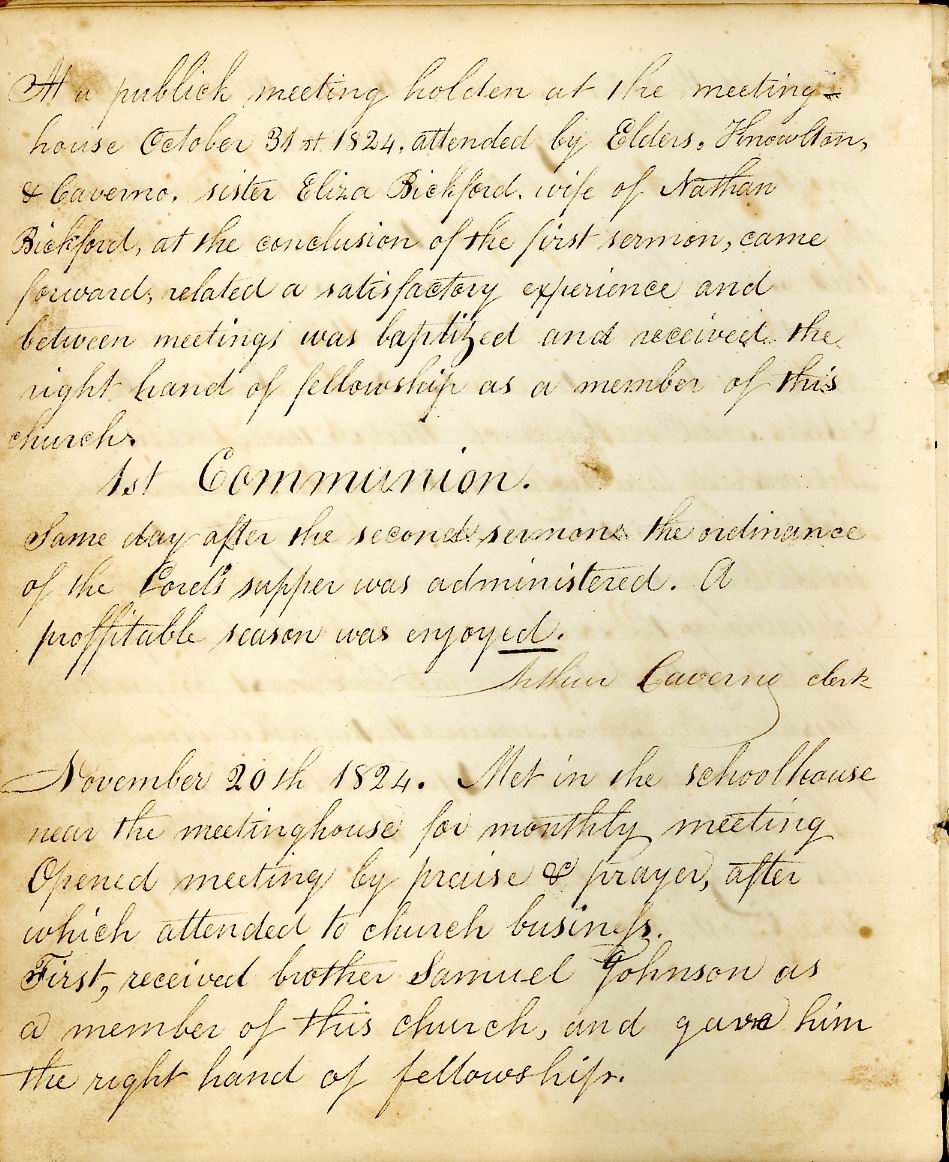 At a publick meeting holden at the meeting=
house October 31st 1824. attended by Elders, Knowlton,
& Caverno. sister Eliza Bickford. wife of Nathan
Bickford, at the conclusion of the first sermon, came
forward, related a satisfactory experience and
between meetings was baptized and received the
right hand of fellowship as a member of this
church.
1st Communion.
Same day after the second sermon the ordinance
of the Lord's supper was administered. A
proffitable season was enjoyed.
Arthur Caverno clerk
November 20th 1824. Met in the schoolhouse
near the meetinghouse for monthly meeting
Opened meeting by praise & prayer, after
which attended to church business.
First, received brother Samuel Johnson as
a member of this church, and gave him
the right hand of fellowship.